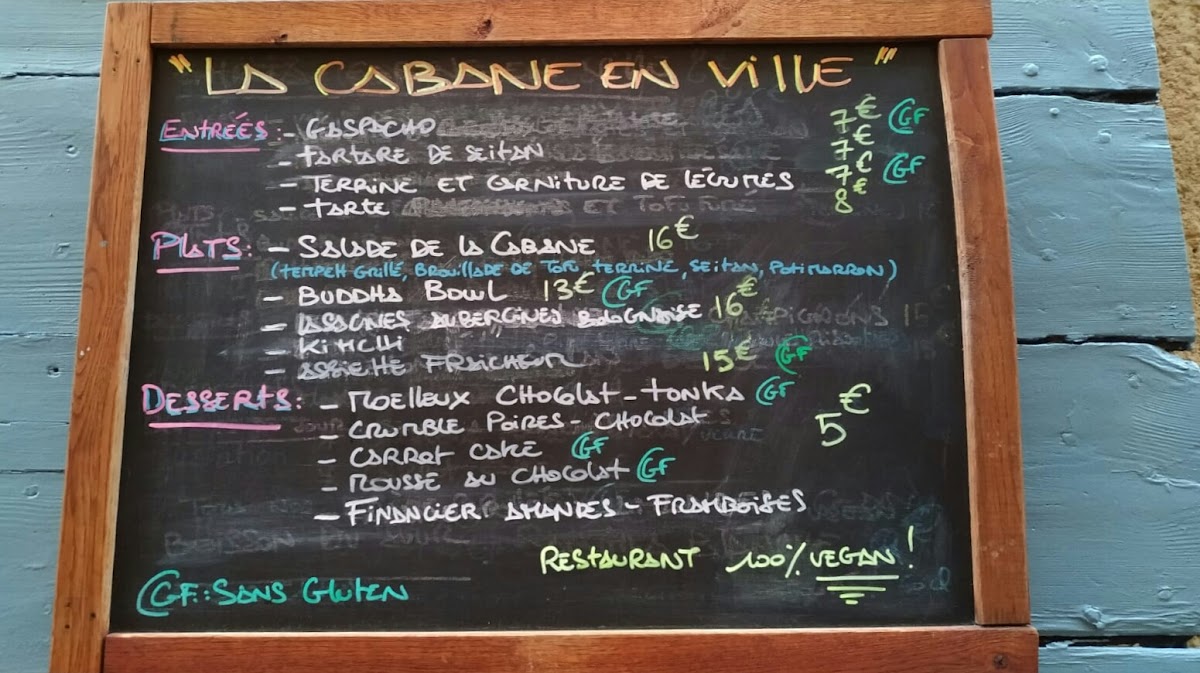 "LA CABANE EN VILLE"
ENTRÉÉS : - GASPACHO 7€ GF
- TARTARE DE SEITAN 7€
- TERRINE ET GARNITURE DE LÉGUMES 7€ GF
- TARTE ET TOFU FUMÉ 8€
PLATS : - SALADE DE LA CABANE 16€
(TEMPEH GRILLÉ, BROUILLADE DE TOFU, TERRINE, SEITAN, POTIMARRON)
- BUDDHA BOWL 13€ GF
- LASAGNES AUBERGINES BOLOGNAISE 16€
- KIMCHI
- ASSIETTE FRAICHEUR 15€ GF
DESSERTS : - MOELLEUX CHOCOLAT - TONKA GF
- CRUMBLE POIRES - CHOCOLAT 5€
- CARROT CAKE GF
- MOUSSE AU CHOCOLAT GF
- FINANCIER AMANDES - FRAMBOISES
RESTAURANT 100% VEGAN !
GF : SANS GLUTEN